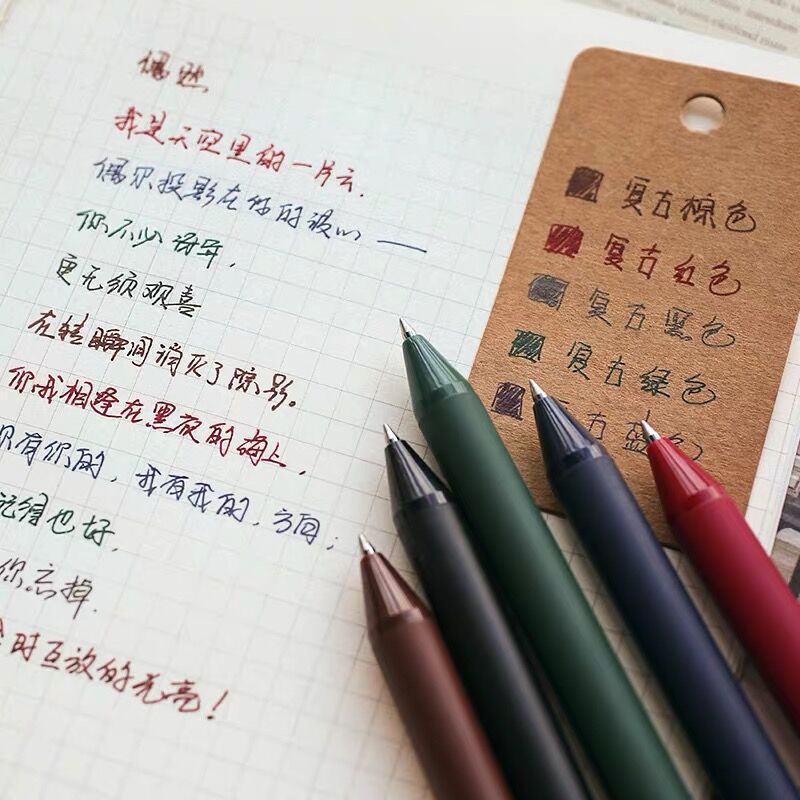 偶然
我是天空里的一片云.
偶尔投影在你的波心 ——
你不必讶异,
更无须观喜
在转瞬间消灭了踪影。
你我相逢在黑夜的海上,
你有你的, 我有我的, 方向;
记得也好,
你忘掉.
时互放的光亮!
复古棕色
复古红色
复古黑色
复古绿色
复古蓝色